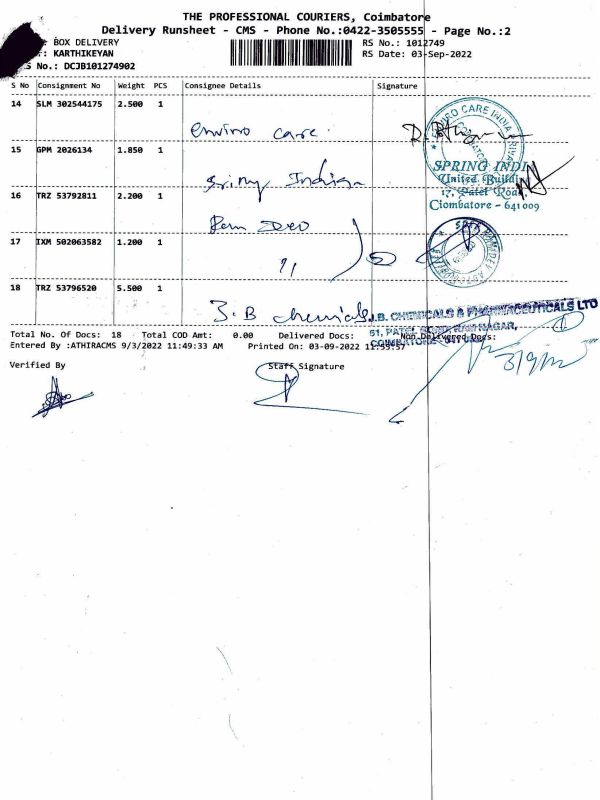 THE PROFESSIONAL COURIERS, Coimbatore
Delivery Runsheet - CMS - Phone No.:0422-3505555 - Page No.:2
: BOX DELIVERY
RS No.: 1012749
: KARTHIKEYAN
RS Date: 03-Sep-2022
S No.: DCJB101274902
S No Consignment No Weight PCS Consignee Details Signature
14 SLM 302544175 2.500 1
Enviro Care
ENVIRO CARE INDIA PRIVATE
15 GPM 2026134 1.850 1
SPRING INDI
United Buildin
17, Patel Road
Ciombatore - 641 009
16 TRZ 53792811 2.200 1
17 IXM 502063582 1.200 1
18 TRZ 53796520 5.500 1
J.B chemicals
J.B. CHEMICALS & PHARMACEUTICALS LTD
51, PATEL ROAD, RAM NAGAR,
Total No. Of Docs: 18 Total COD Amt: 0.00 Delivered Docs: Non Delivered Docs:
Entered By :ATHIRACMS 9/3/2022 11:49:33 AM Printed On: 03-09-2022 11:53:57
Verified By Staff Signature